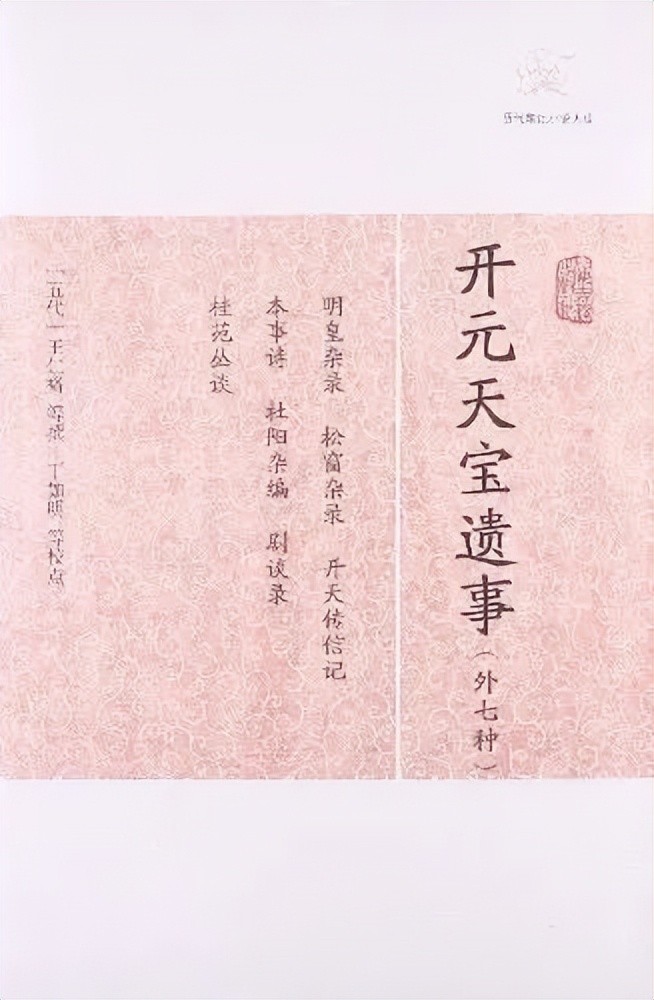 开元天宝遗事（外七种）
明皇杂录 松窗杂录 开天传信记
本事诗 杜阳杂编 剧谈录
桂苑丛谈
五代 王仁裕 等撰 丁如明 等校点